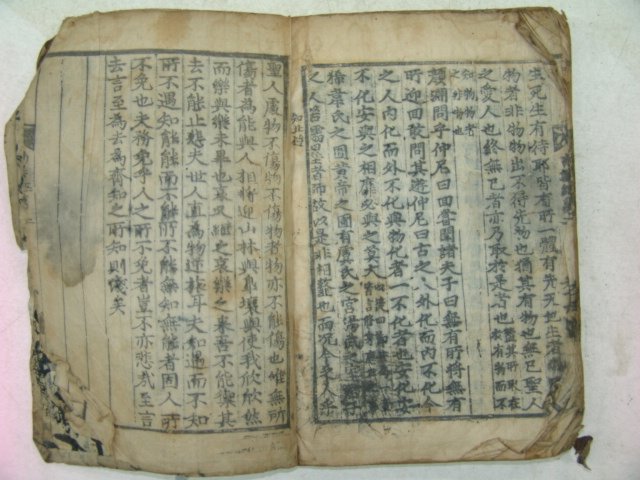 生死生有待耶皆有所一體有先天地生者
物者非物物出不得先物也猶其有物也無已聖人
之愛人也終無已者亦乃取於是者也
顏淵問乎仲尼曰回嘗聞諸夫子曰無有所將無有
所迎回敢問其遊仲尼曰古之人外化而內不化今
之人內化而外不化與物化者一不化者也安化安
不化安與之相靡必與之莫
韋氏之囿黃帝之圃有虞氏之宮湯武之
之人若儒墨者師故以是非相也而況今之人乎
知北遊
聖人處物不傷物不傷物者物亦不能傷也唯無所
傷者為能與人相將迎山林與皐壤與使我欣欣然
而樂與樂未畢也哀又継之哀樂之来吾不能禦其
去不能止悲夫世人直為物逆旅耳夫知遇而不知
所不遇知能能而不能所不能無知無能者固人之所
不免也夫務免乎人之所不免者豈不亦悲哉至言
去言至為去為齊知之所知則淺矣